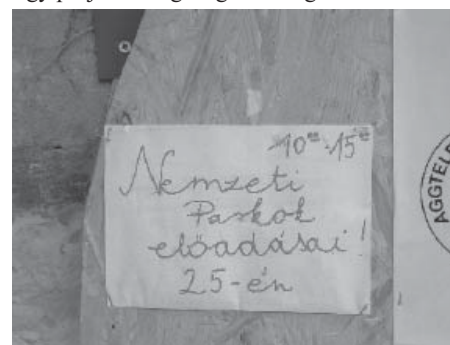 10⁰⁰-15⁰⁰
Nemzeti
Parkok
előadásai!
25-én
AGGTEL